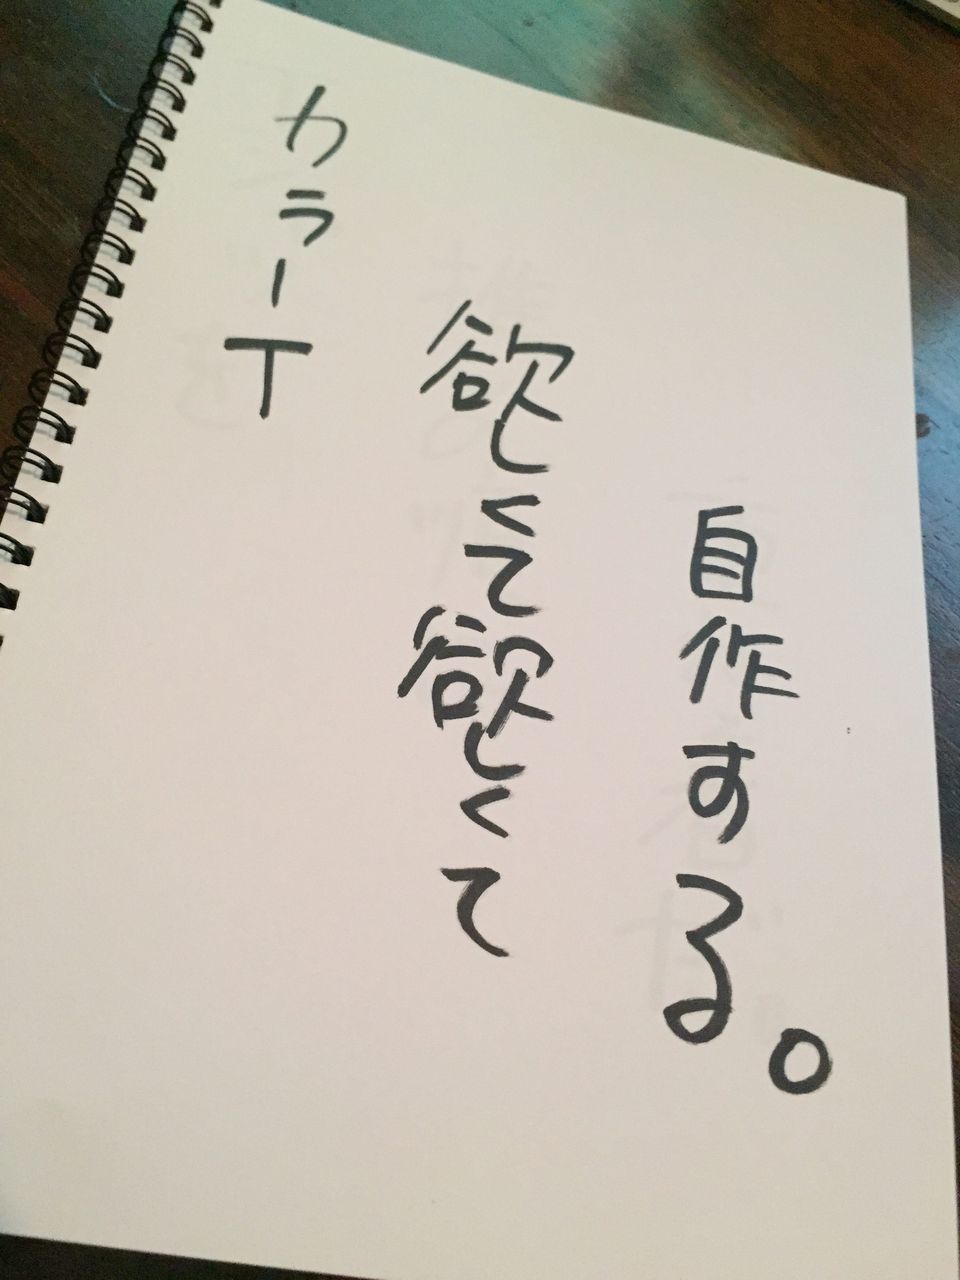 カラーT
欲しくて欲しくて
自作する。